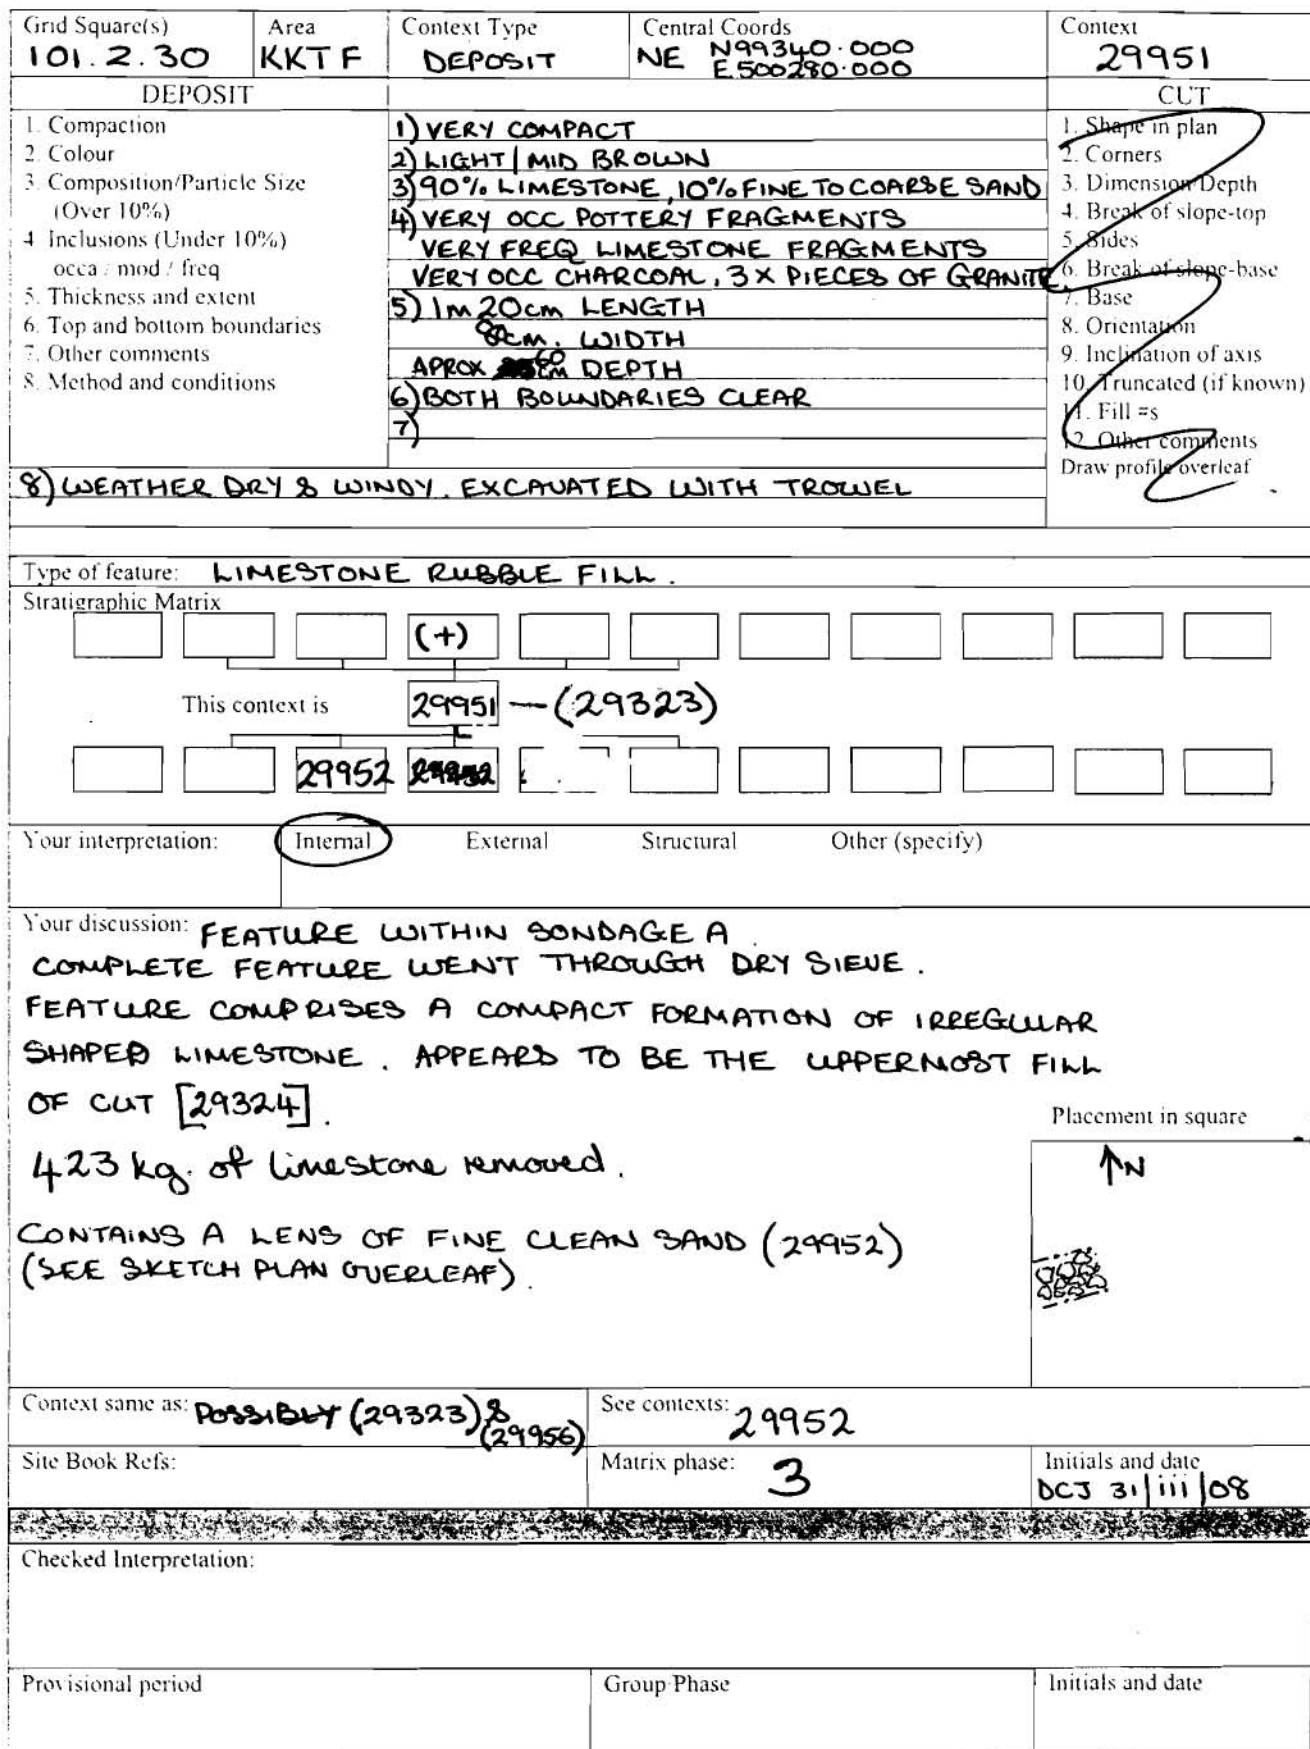 Grid Square(s) Area Context Type Central Coords Context
101.2.30 KKTF DEPOSIT NE N99340.000 29951
E500280.000
DEPOSIT CUT
1. Compaction
2. Colour
3. Composition/Particle Size
(Over 10%)
4 Inclusions (Under 10%)
occa / mod / freq
5. Thickness and extent
6. Top and bottom boundaries
7. Other comments
8. Method and conditions
1) VERY COMPACT
2) LIGHT / MID BROWN
3) 90% LIMESTONE, 10% FINE TO COARSE SAND
4) VERY OCC POTTERY FRAGMENTS
VERY FREQ LIMESTONE FRAGMENTS
VERY OCC CHARCOAL, 3 X PIECES OF GRANITE.
5) 1m 20cm LENGTH
80cm. WIDTH
APROX 60 cm DEPTH
6) BOTH BOUNDARIES CLEAR
7)
1. Shape in plan
2. Corners
3. Dimension/Depth
4. Break of slope-top
5. Sides
6. Break of slope-base
7. Base
8. Orientation
9. Inclination of axis
10. Truncated (if known)
11. Fill =s
12. Other comments
Draw profile overleaf
8) WEATHER DRY & WINDY. EXCAVATED WITH TROWEL
Type of feature: LIMESTONE RUBBLE FILL.
Stratigraphic Matrix
(+)
This context is 29951 — (29323)
29952
Your interpretation: Internal External Structural Other (specify)
Your discussion: FEATURE WITHIN SONDAGE A
COMPLETE FEATURE WENT THROUGH DRY SIEVE.
FEATURE COMPRISES A COMPACT FORMATION OF IRREGULAR
SHAPED LIMESTONE. APPEARS TO BE THE UPPERMOST FILL
OF CUT [29324].
423 kg. of limestone removed.
CONTAINS A LENS OF FINE CLEAN SAND (29952)
(SEE SKETCH PLAN OVERLEAF).
Placement in square
↑N
Context same as: POSSIBLY (29323) &
(29956)
See contexts: 29952
Site Book Refs: Matrix phase: 3 Initials and date
DCJ 31/iii/08
Checked Interpretation:
Provisional period Group/Phase Initials and date